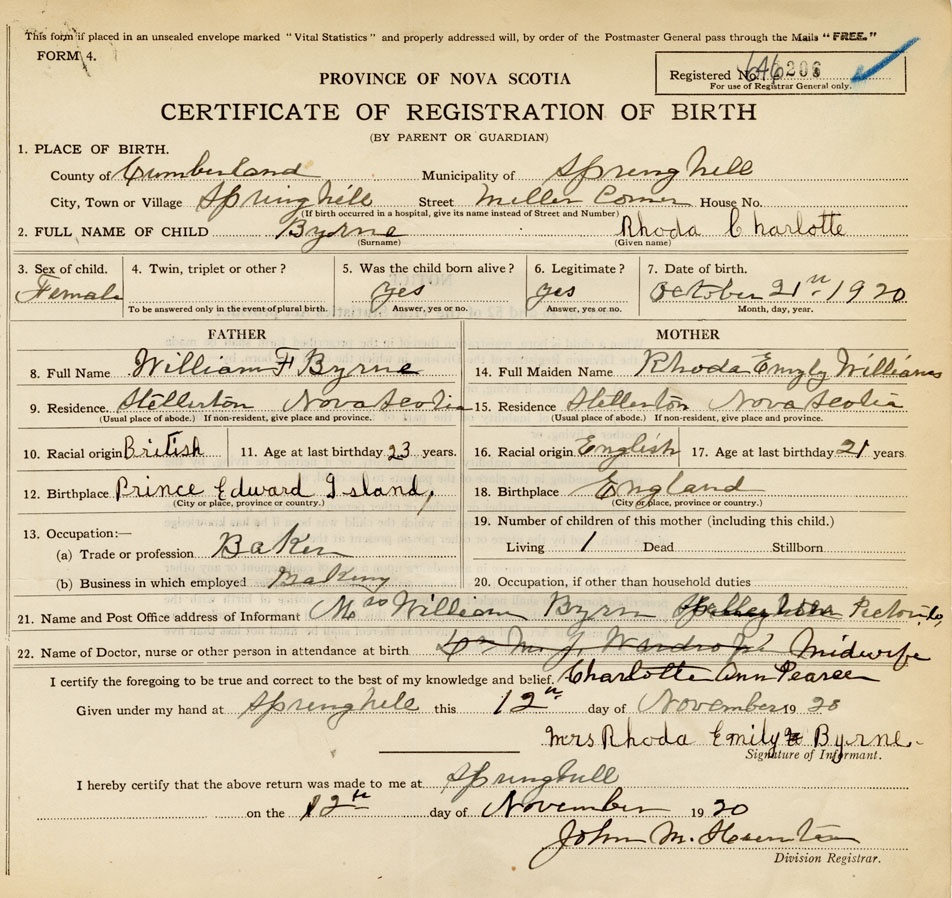 This form if placed in an unsealed envelope marked "Vital Statistics" and properly addressed will, by order of the Postmaster General pass through the Mails "FREE."
FORM 4.
Registered No. 206
For use of Registrar General only.
PROVINCE OF NOVA SCOTIA
CERTIFICATE OF REGISTRATION OF BIRTH
(BY PARENT OR GUARDIAN)
1. PLACE OF BIRTH.
County of Cumberland Municipality of Spring hill
City, Town or Village Spring hill Street Miller Corner House No.
(If birth occurred in a hospital, give its name instead of Street and Number)
2. FULL NAME OF CHILD Byrne Rhoda Charlotte
(Surname) (Given name)
3. Sex of child. 4. Twin, triplet or other? 5. Was the child born alive? 6. Legitimate? 7. Date of birth.
Female yes yes October 21 1920
To be answered only in the event of plural birth. Answer, yes or no. Answer, yes or no. Month, day, year.
FATHER MOTHER
8. Full Name William F Byrne 14. Full Maiden Name Rhoda Emily Williams
9. Residence. Stellerton Nova Scotia 15. Residence Stellerton Nova Scotia
(Usual place of abode.) If non-resident, give place and province. (Usual place of abode.) If non-resident, give place and province.
10. Racial origin British 11. Age at last birthday 23 years. 16. Racial origin English 17. Age at last birthday 21 years
12. Birthplace Prince Edward Island, 18. Birthplace England
(City or place, province or country.) (City or place, province or country.)
13. Occupation:— 19. Number of children of this mother (including this child.)
(a) Trade or profession Baker Living 1 Dead Stillborn
(b) Business in which employed Bakery 20. Occupation, if other than household duties
21. Name and Post Office address of Informant Mrs William Byrne Pictou Co
22. Name of Doctor, nurse or other person in attendance at birth Midwife
I certify the foregoing to be true and correct to the best of my knowledge and belief. Charlotte Ann Pearce
Given under my hand at Springhill this 12th day of November 1920
Mrs Rhoda Emily Byrne.
Signature of Informant.
I hereby certify that the above return was made to me at Springhill
on the 12th day of November 1920
John M.
Division Registrar.